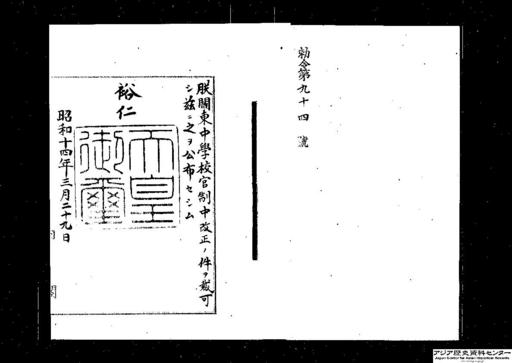 勅令第九十四號
朕關東中學校官制中改正ノ件ヲ裁可
シ茲ニ之ヲ公布セシム
裕仁
天皇
御璽
昭和十四年三月二十九日
内
閣
アジア歴史資料センター
Japan Center for Asian Historical Records